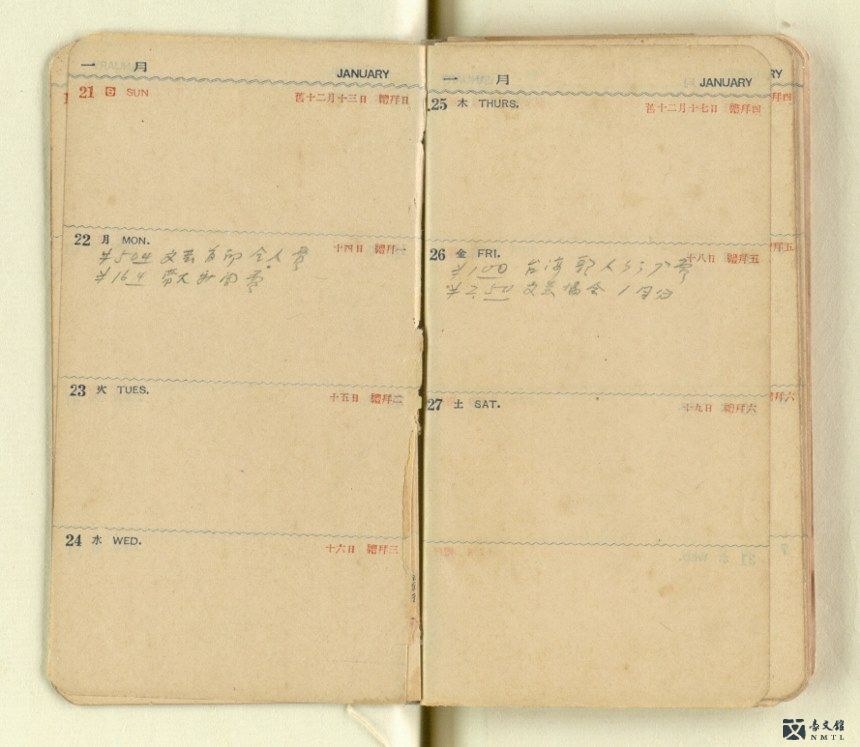 一月 JANUARY
21 日 SUN 舊十二月十三日 禮拜日
22 月 MON. 十四日 禮拜一
¥504
¥164 費
23 火 TUES. 十五日 禮拜二
24 水 WED. 十六日 禮拜三
一月 JANUARY
25 木 THURS. 舊十二月十七日 禮拜四
26 金 FRI. 十八日 禮拜五
¥100 台灣
¥2.50 文芸協会 1月分
27 土 SAT. 十九日 禮拜六
RY
拜四
拜五
拜六
臺文館
NMTL